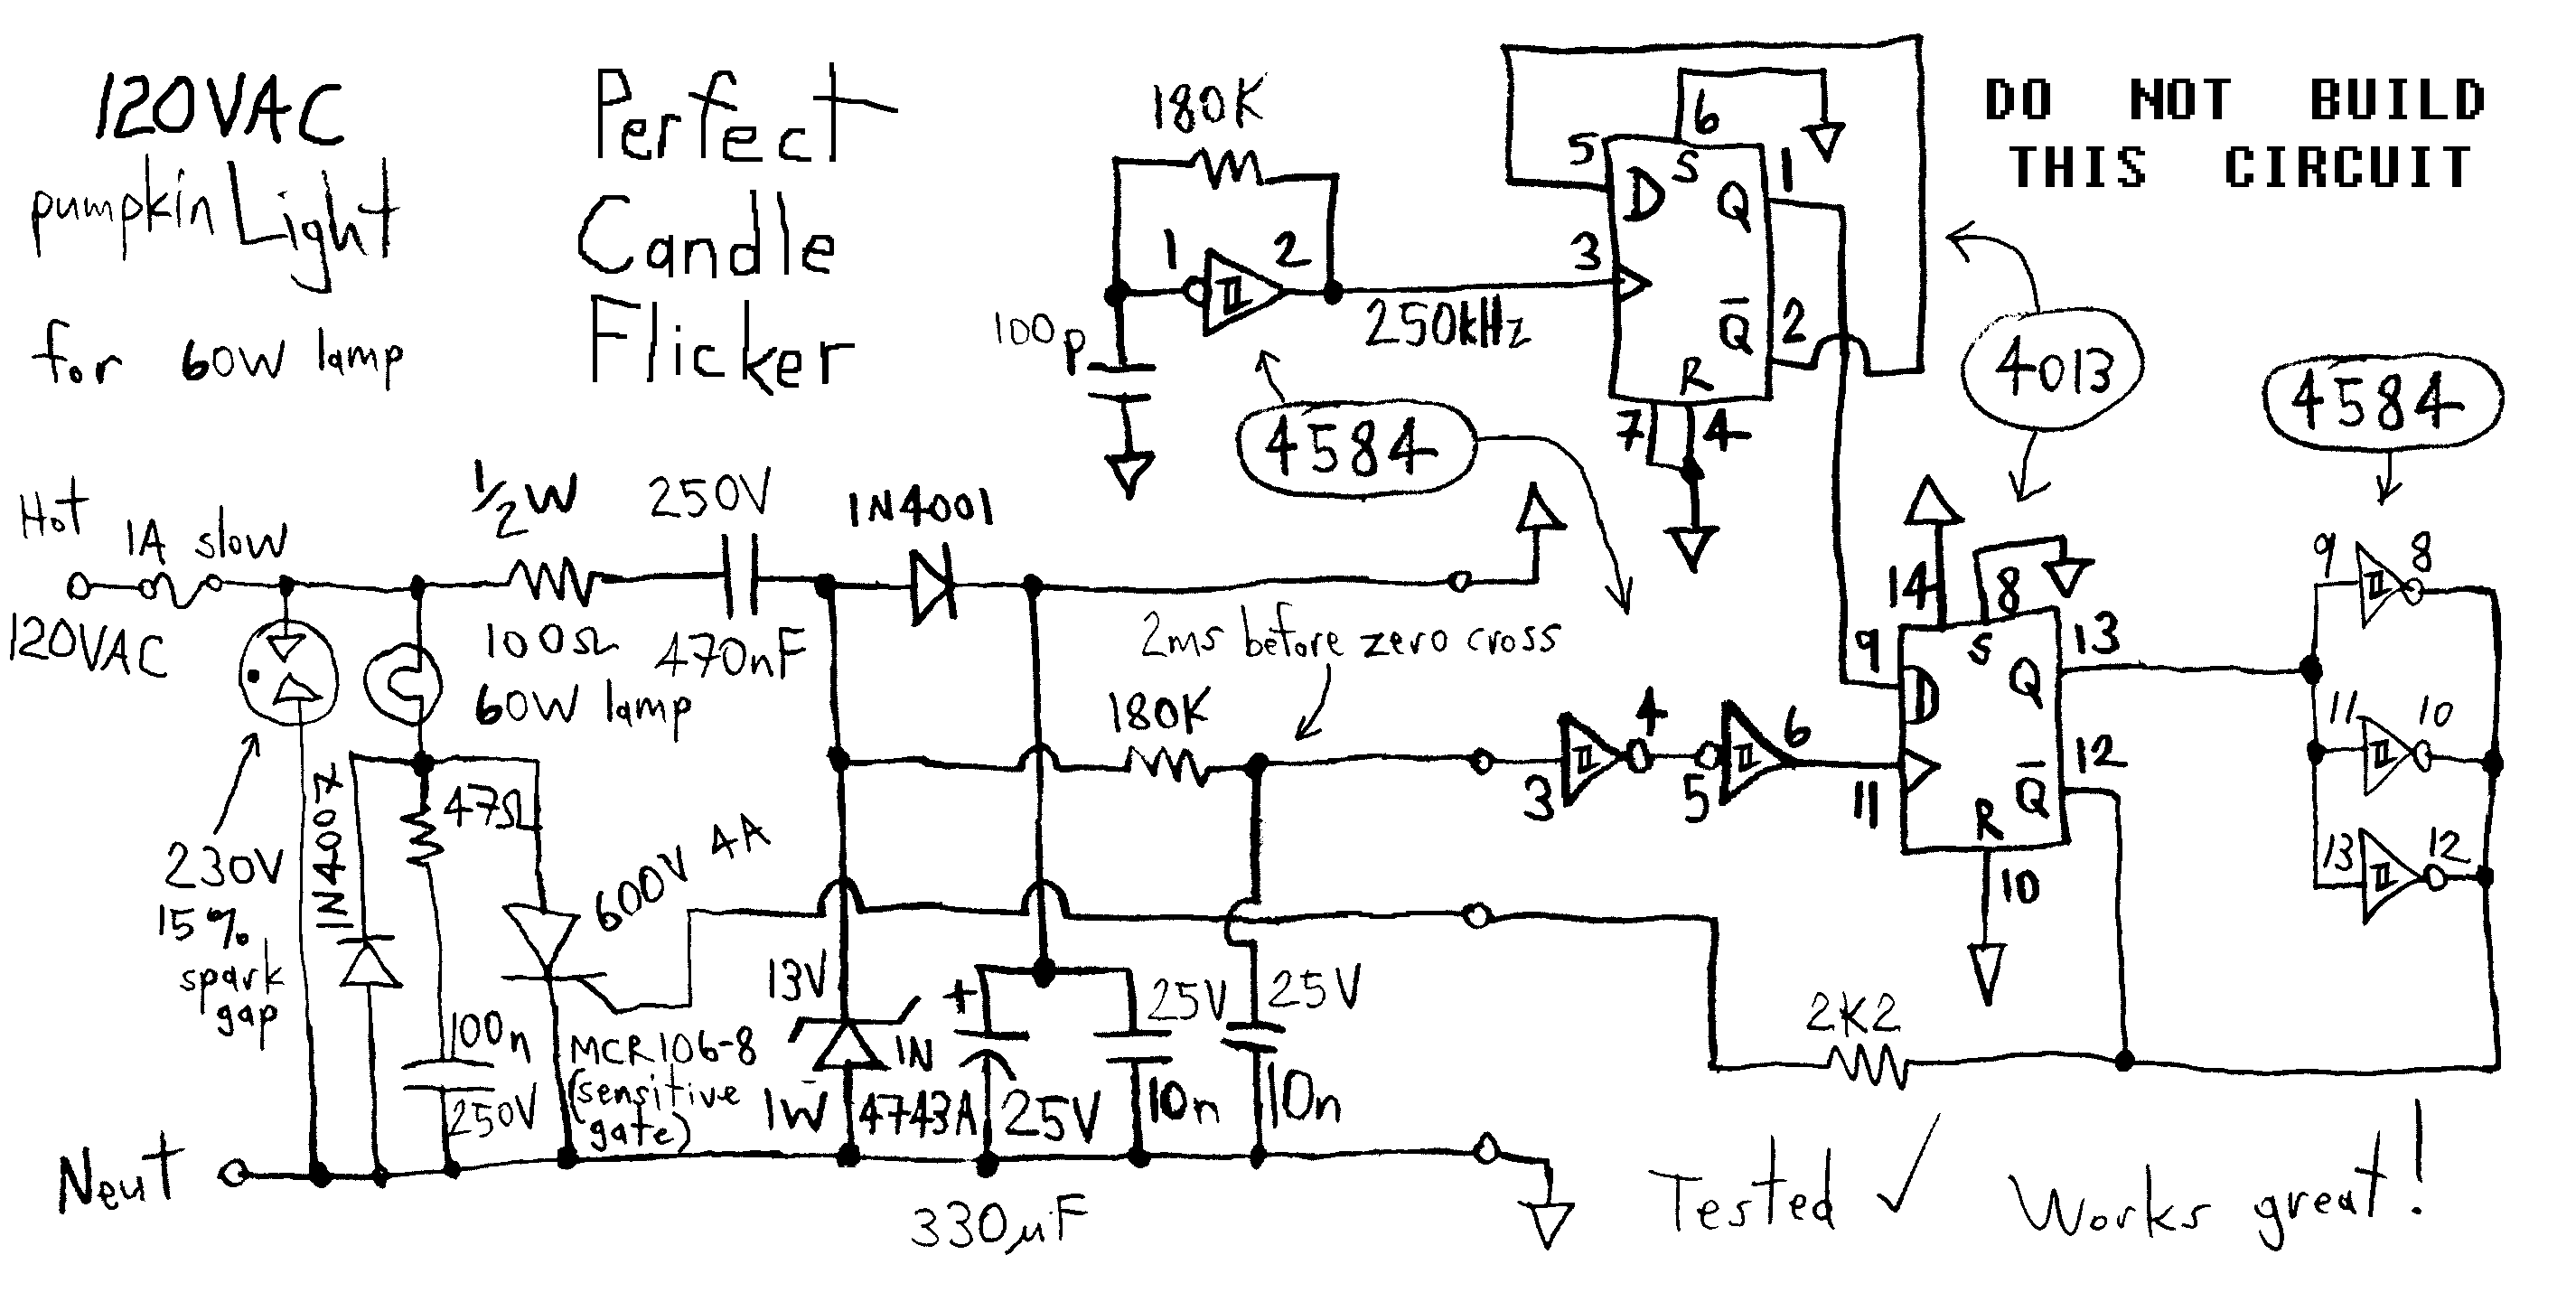 120VAC
pumpkin Light
for 60W lamp
Perfect
Candle
Flicker
DO NOT BUILD
THIS CIRCUIT
180K
1
2
100p
250kHz
4584
5
6
D
S
Q
1
3
Q̅
2
R
7
4
4013
4584
Hot
1A slow
120VAC
1/2W
100Ω
250V
470nF
1N4001
60W lamp
2ms before zero cross
180K
3
4
5
6
14
8
9
D
S
Q
13
11
Q̅
12
R
10
9
8
11
10
13
12
230V
15%
spark
gap
1N4007
47Ω
600V 4A
100n
250V
MCR106-8
(sensitive
gate)
13V
1W
1N
4743A
+
25V
330µF
25V
10n
25V
10n
2K2
Neut
Tested ✓ Works great!